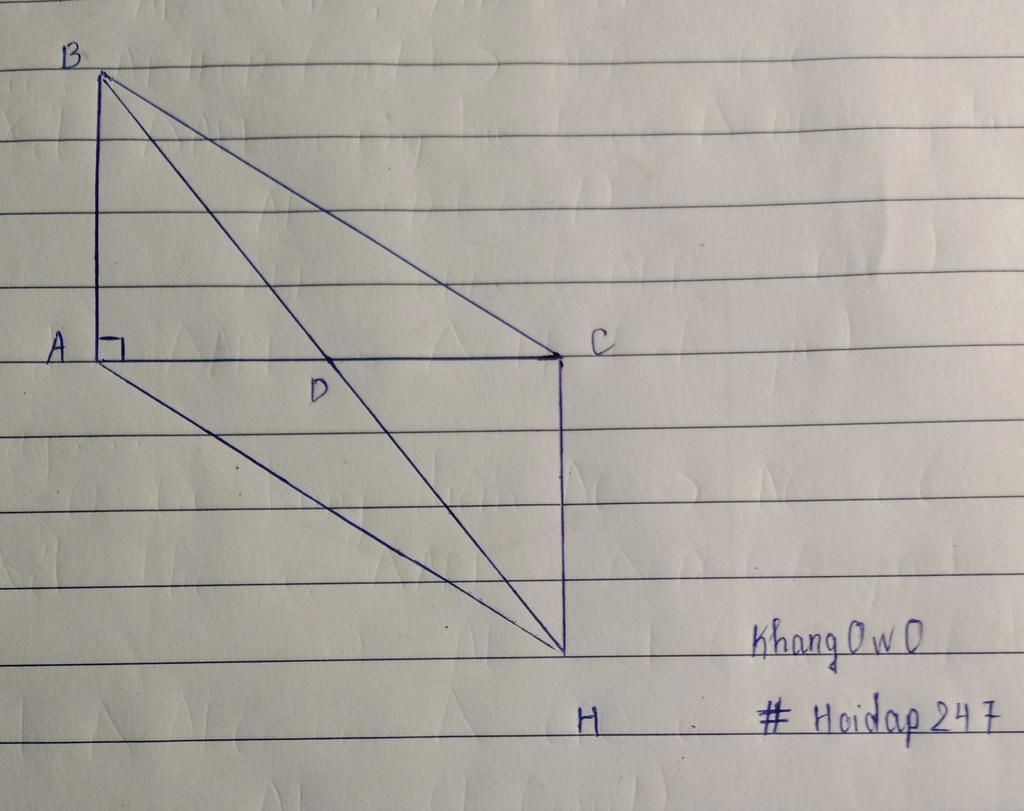 B
A
C
D
KhangOwO
H
# Hoidap247